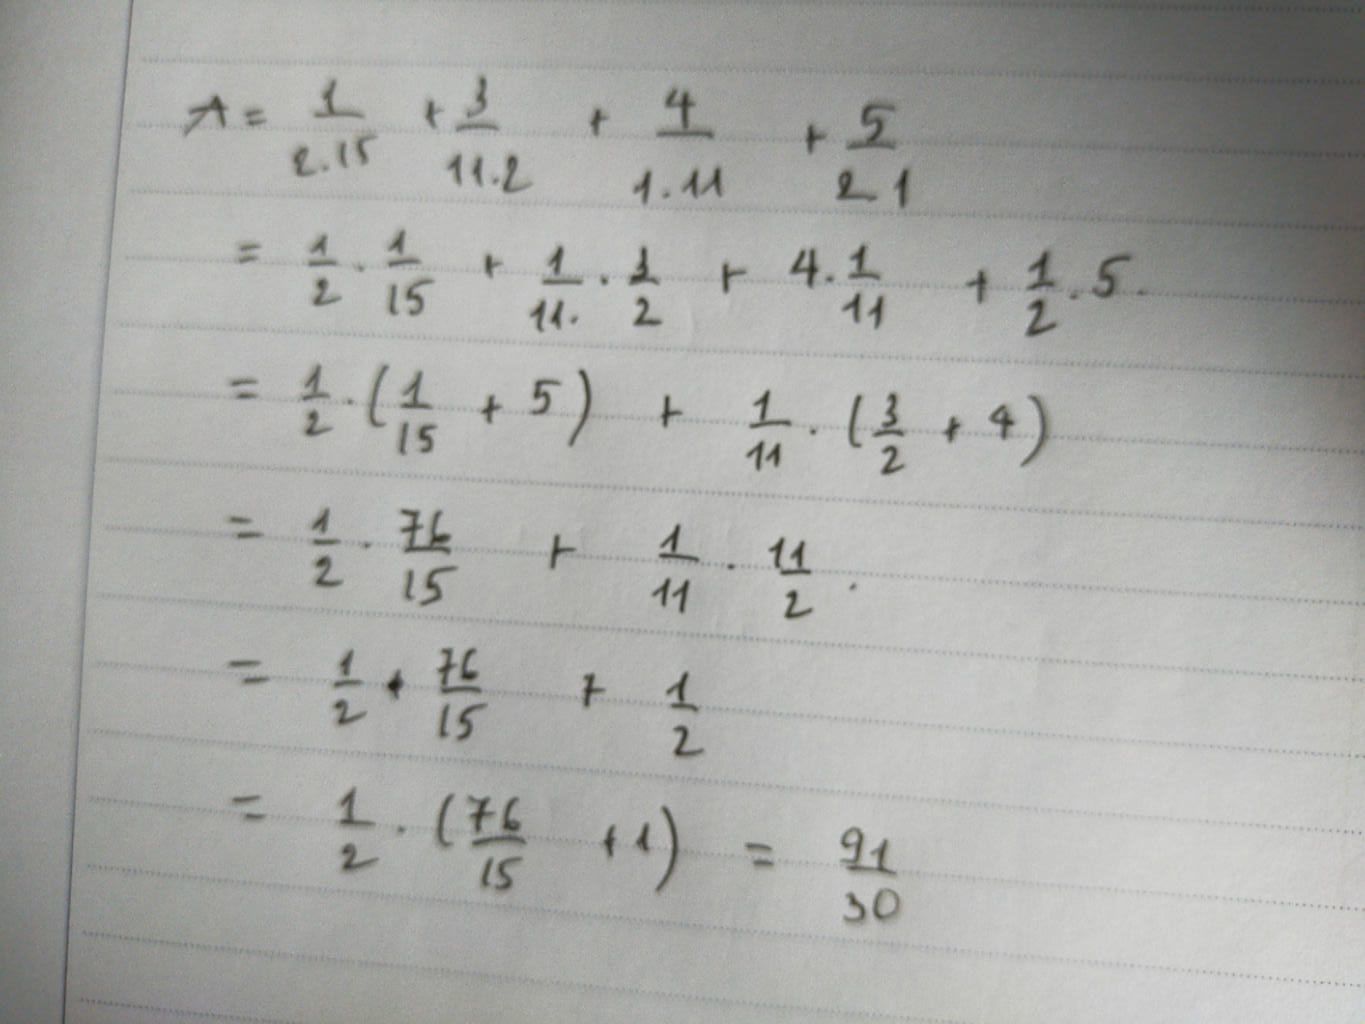 A = 1/2.15 + 3/11.2 + 4/1.11 + 5/2 1
= 1/2 . 1/15 + 1/11. . 3/2 + 4. 1/11 + 1/2 . 5.
= 1/2 . (1/15 + 5) + 1/11 . (3/2 + 4)
= 1/2 . 76/15 + 1/11 . 11/2 .
= 1/2 . 76/15 + 1/2
= 1/2 . (76/15 + 1) = 91/30